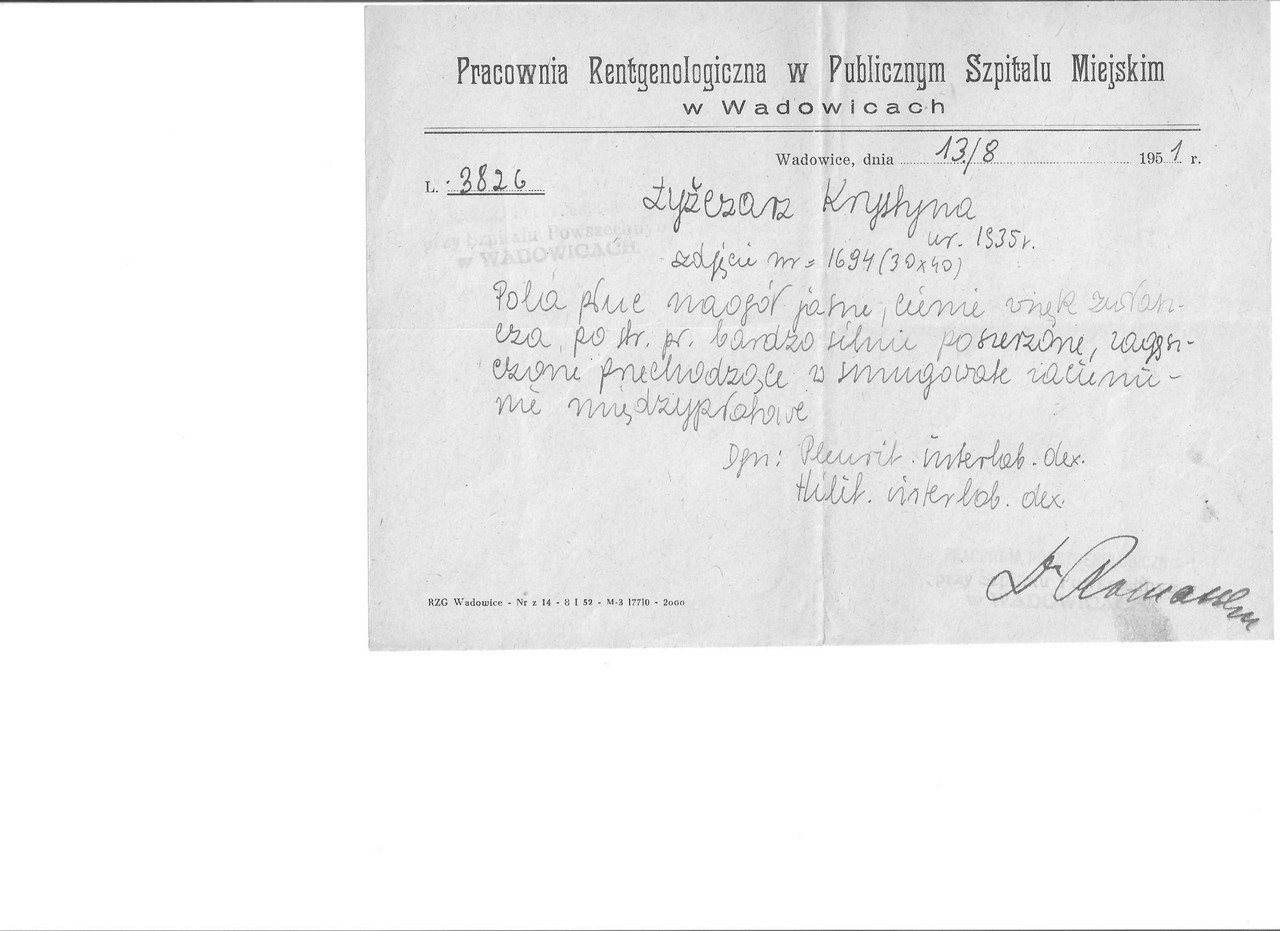 Pracownia Rentgenologiczna w Publicznym Szpitalu Miejskim
w Wadowicach
Wadowice, dnia 13/8 1951 r.
L. 3826
Łyżczarz Krystyna
ur. 1935 r.
zdjęcie nr = 1694 (30x40)
Pola płuc naogół jasne, cienie wnęk zwłasz-
cza po str. pr. bardzo silnie poszerzone, zagęsz-
czone przechodzące w smugowate zacienie-
nie międzypłatowe
Dgn: Pleurit. interlob. dex.
Hilit. interlob. dex.
Dr
RZG Wadowice - Nr z 14 - 8 I 52 - M-3 17710 - 2000
przy Szpitalu Powszechnym
w WADOWICACH